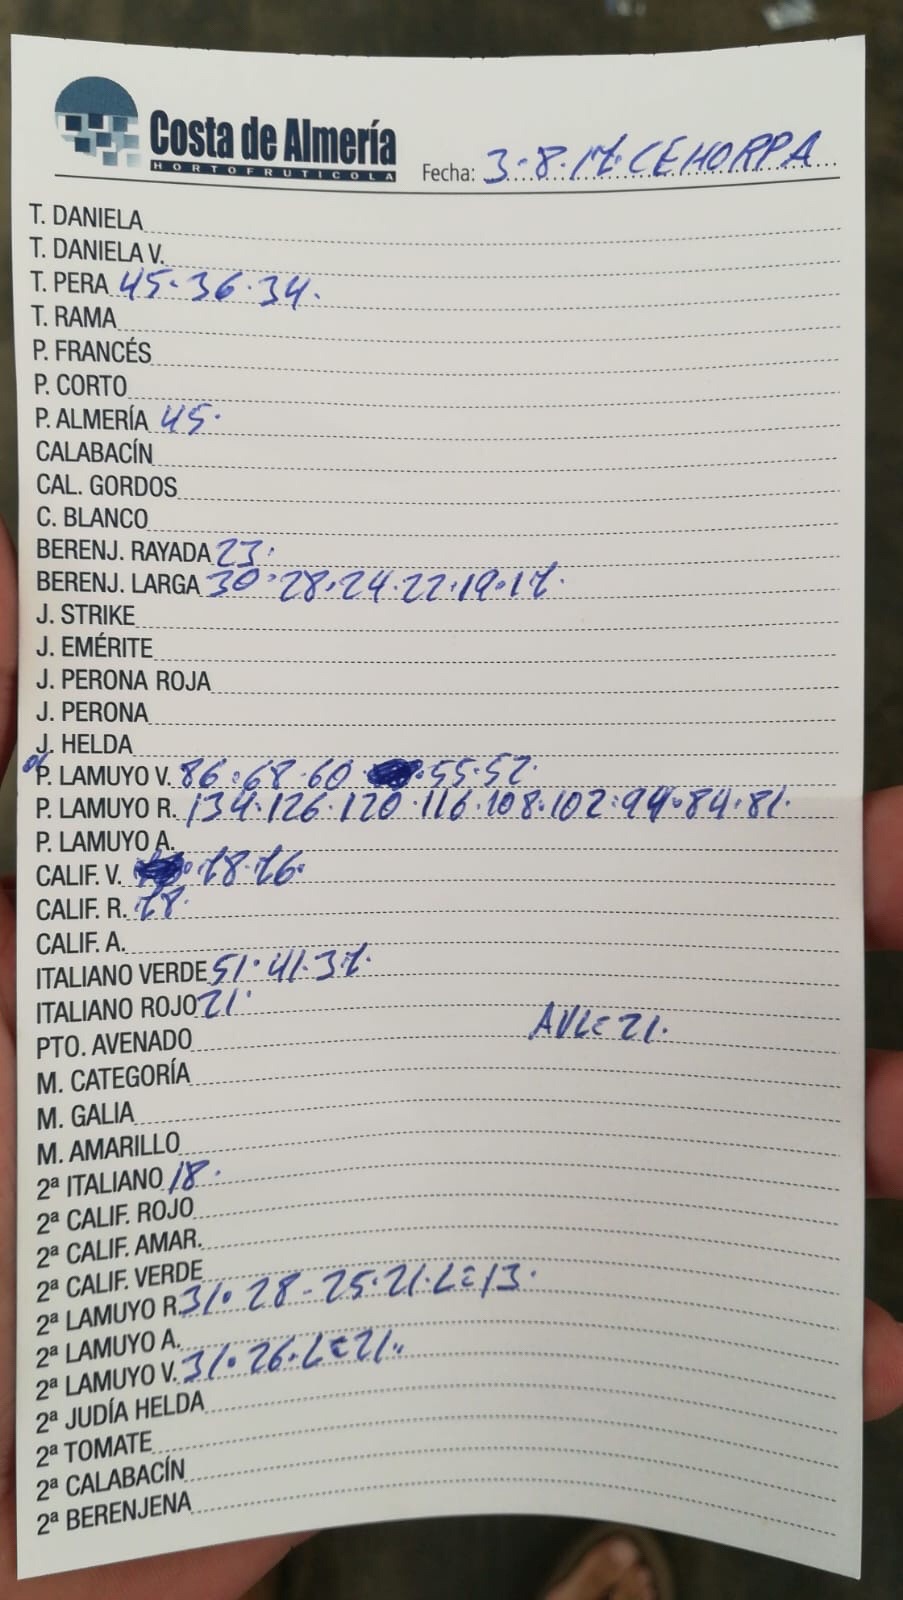 Costa de Almería
HORTOFRUTICOLA
Fecha: 3-8-17. CEHORPA
T. DANIELA
T. DANIELA V.
T. PERA 45. 36. 34.
T. RAMA
P. FRANCÉS
P. CORTO
P. ALMERÍA 45.
CALABACÍN
CAL. GORDOS
C. BLANCO
BERENJ. RAYADA 23.
BERENJ. LARGA 30. 28. 24. 22. 19. 17.
J. STRIKE
J. EMÉRITE
J. PERONA ROJA
J. PERONA
J. HELDA
P. LAMUYO V. 86. 68. 60. 55. 52.
P. LAMUYO R. 134. 126. 120. 116. 108. 102. 94. 84. 81.
P. LAMUYO A.
CALIF. V. 78. 76.
CALIF. R. 78.
CALIF. A.
ITALIANO VERDE 51. 41. 37.
ITALIANO ROJO 21.
PTO. AVENADO AVL= 21.
M. CATEGORÍA
M. GALIA
M. AMARILLO
2ª ITALIANO 18.
2ª CALIF. ROJO
2ª CALIF. AMAR.
2ª CALIF. VERDE
2ª LAMUYO R. 31. 28 - 25. 21. L= 13.
2ª LAMUYO A.
2ª LAMUYO V. 31. 26. L= 21.
2ª JUDÍA HELDA
2ª TOMATE
2ª CALABACÍN
2ª BERENJENA